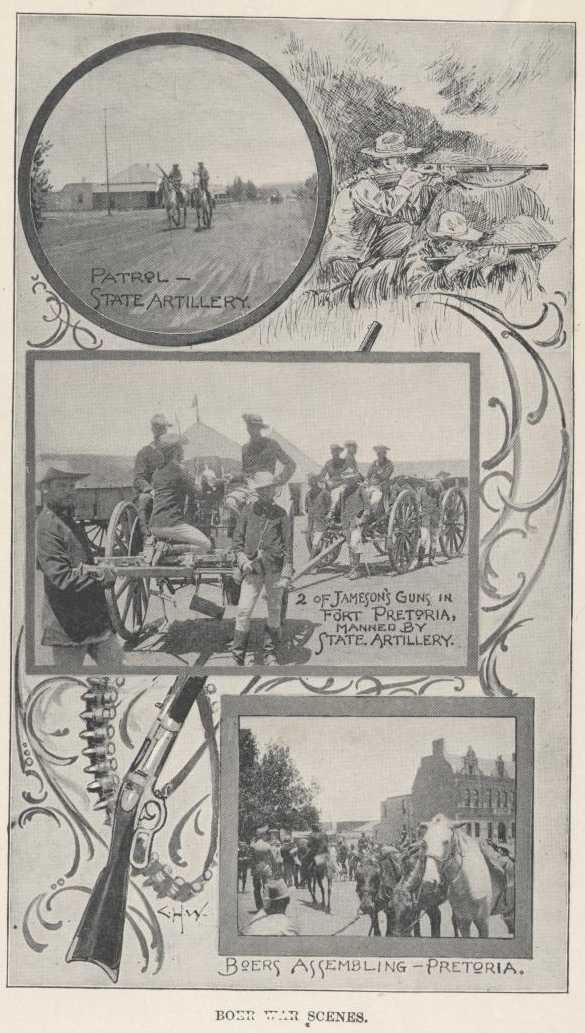 PATROL —
STATE ARTILLERY.
2 OF JAMESON'S GUNS IN
FORT PRETORIA,
MANNED BY
STATE ARTILLERY.
C.H.W.
BOERS ASSEMBLING - PRETORIA.
BOER WAR SCENES.